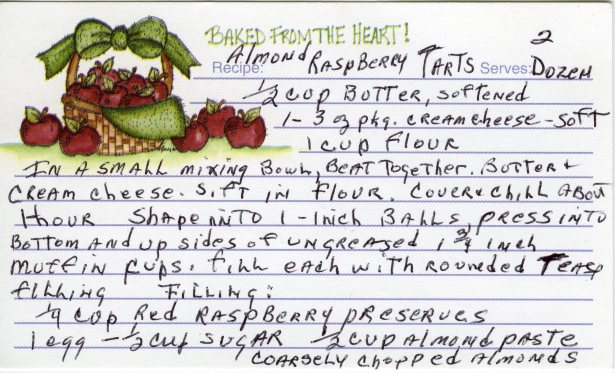 BAKED FROM THE HEART!
Recipe: Almond Raspberry Tarts Serves: 2 Dozen
1/2 cup Butter, softened
1- 3 oz pkg. creamcheese - soft
1 cup flour
In a small mixing Bowl, Beat Together. Butter +
cream cheese. Sift in flour. Cover & chill about
1 hour Shape into 1-inch Balls, press into
Bottom and up sides of ungreased 1 3/4 inch
muffin cups. fill each with rounded Teasp
filling Filling:
1/4 cup Red Raspberry preserves
1 egg - 1/2 cup sugar 1/2 cup Almond paste
coarsely chopped Almonds